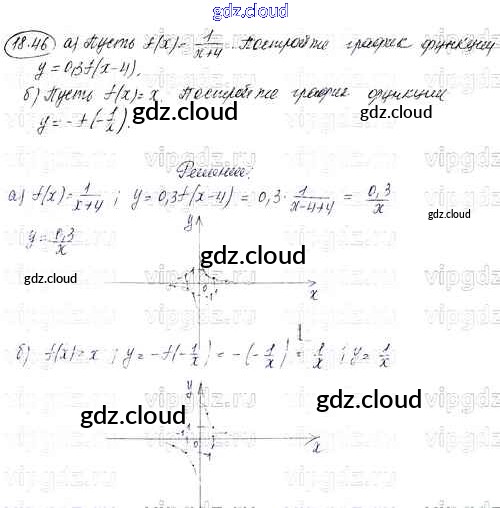 gdz.cloud
18.46 а) Пусть f(x) = 1/(x+4). Постройте график функции
y = 0,3f(x-4).
б) Пусть f(x) = x. Постройте график функции
gdz.cloud
y = -f(-1/x).
Решение:
а) f(x) = 1/(x+4) ; y = 0,3f(x-4) = 0,3 · 1/(x-4+4) = 0,3/x
gdz.cloud
y = 0,3/x
y
gdz.cloud
gdz.cloud
0
x
б) f(x) = x ; y = -f(-1/x) = -(-1/x) = 1/x ; y = 1/x
gdz.cloud
y
gdz.cloud
gdz.cloud
0
x